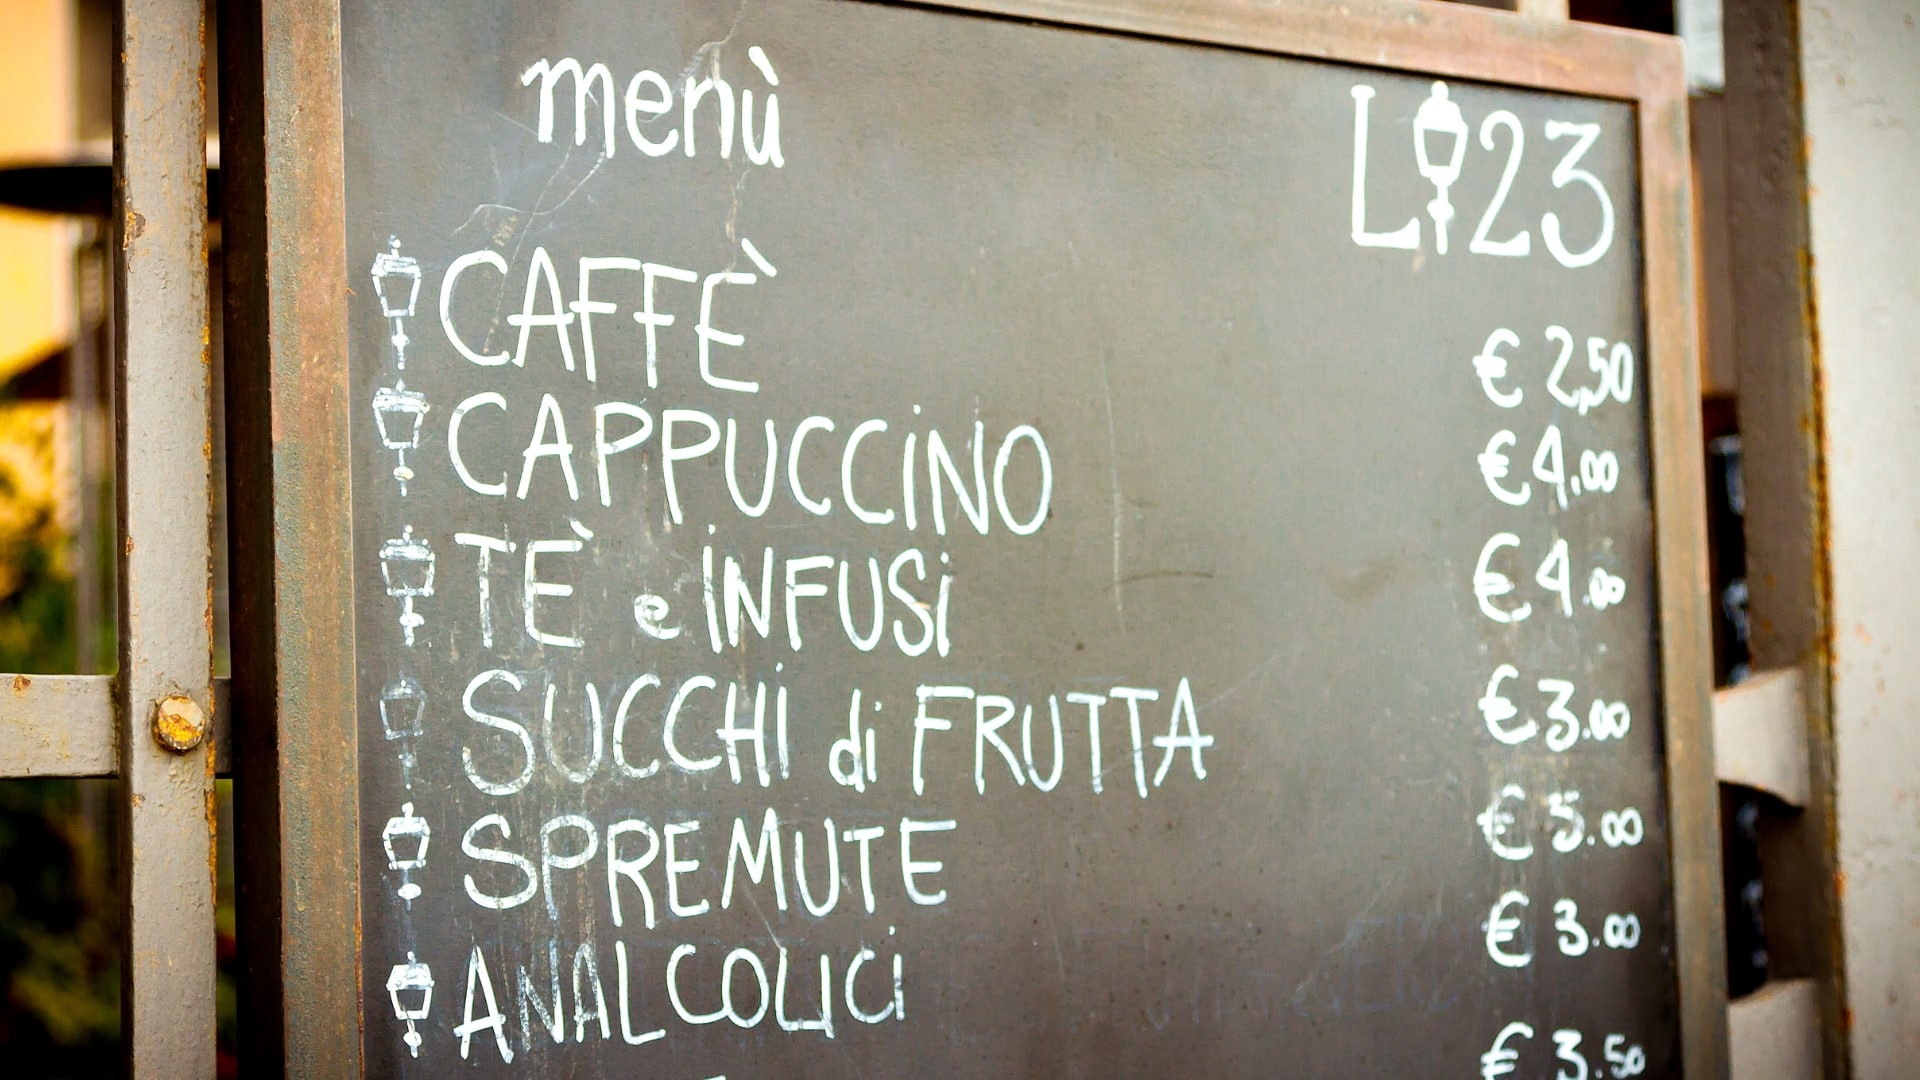 menù
L 23
CAFFÈ € 2,50
CAPPUCCiNO € 4.00
TÈ e iNFUSi € 4.00
SUCCHi di FRUTTA € 3.00
SPREMUTE € 5.00
ANALCOLICi € 3.00
€ 3.50